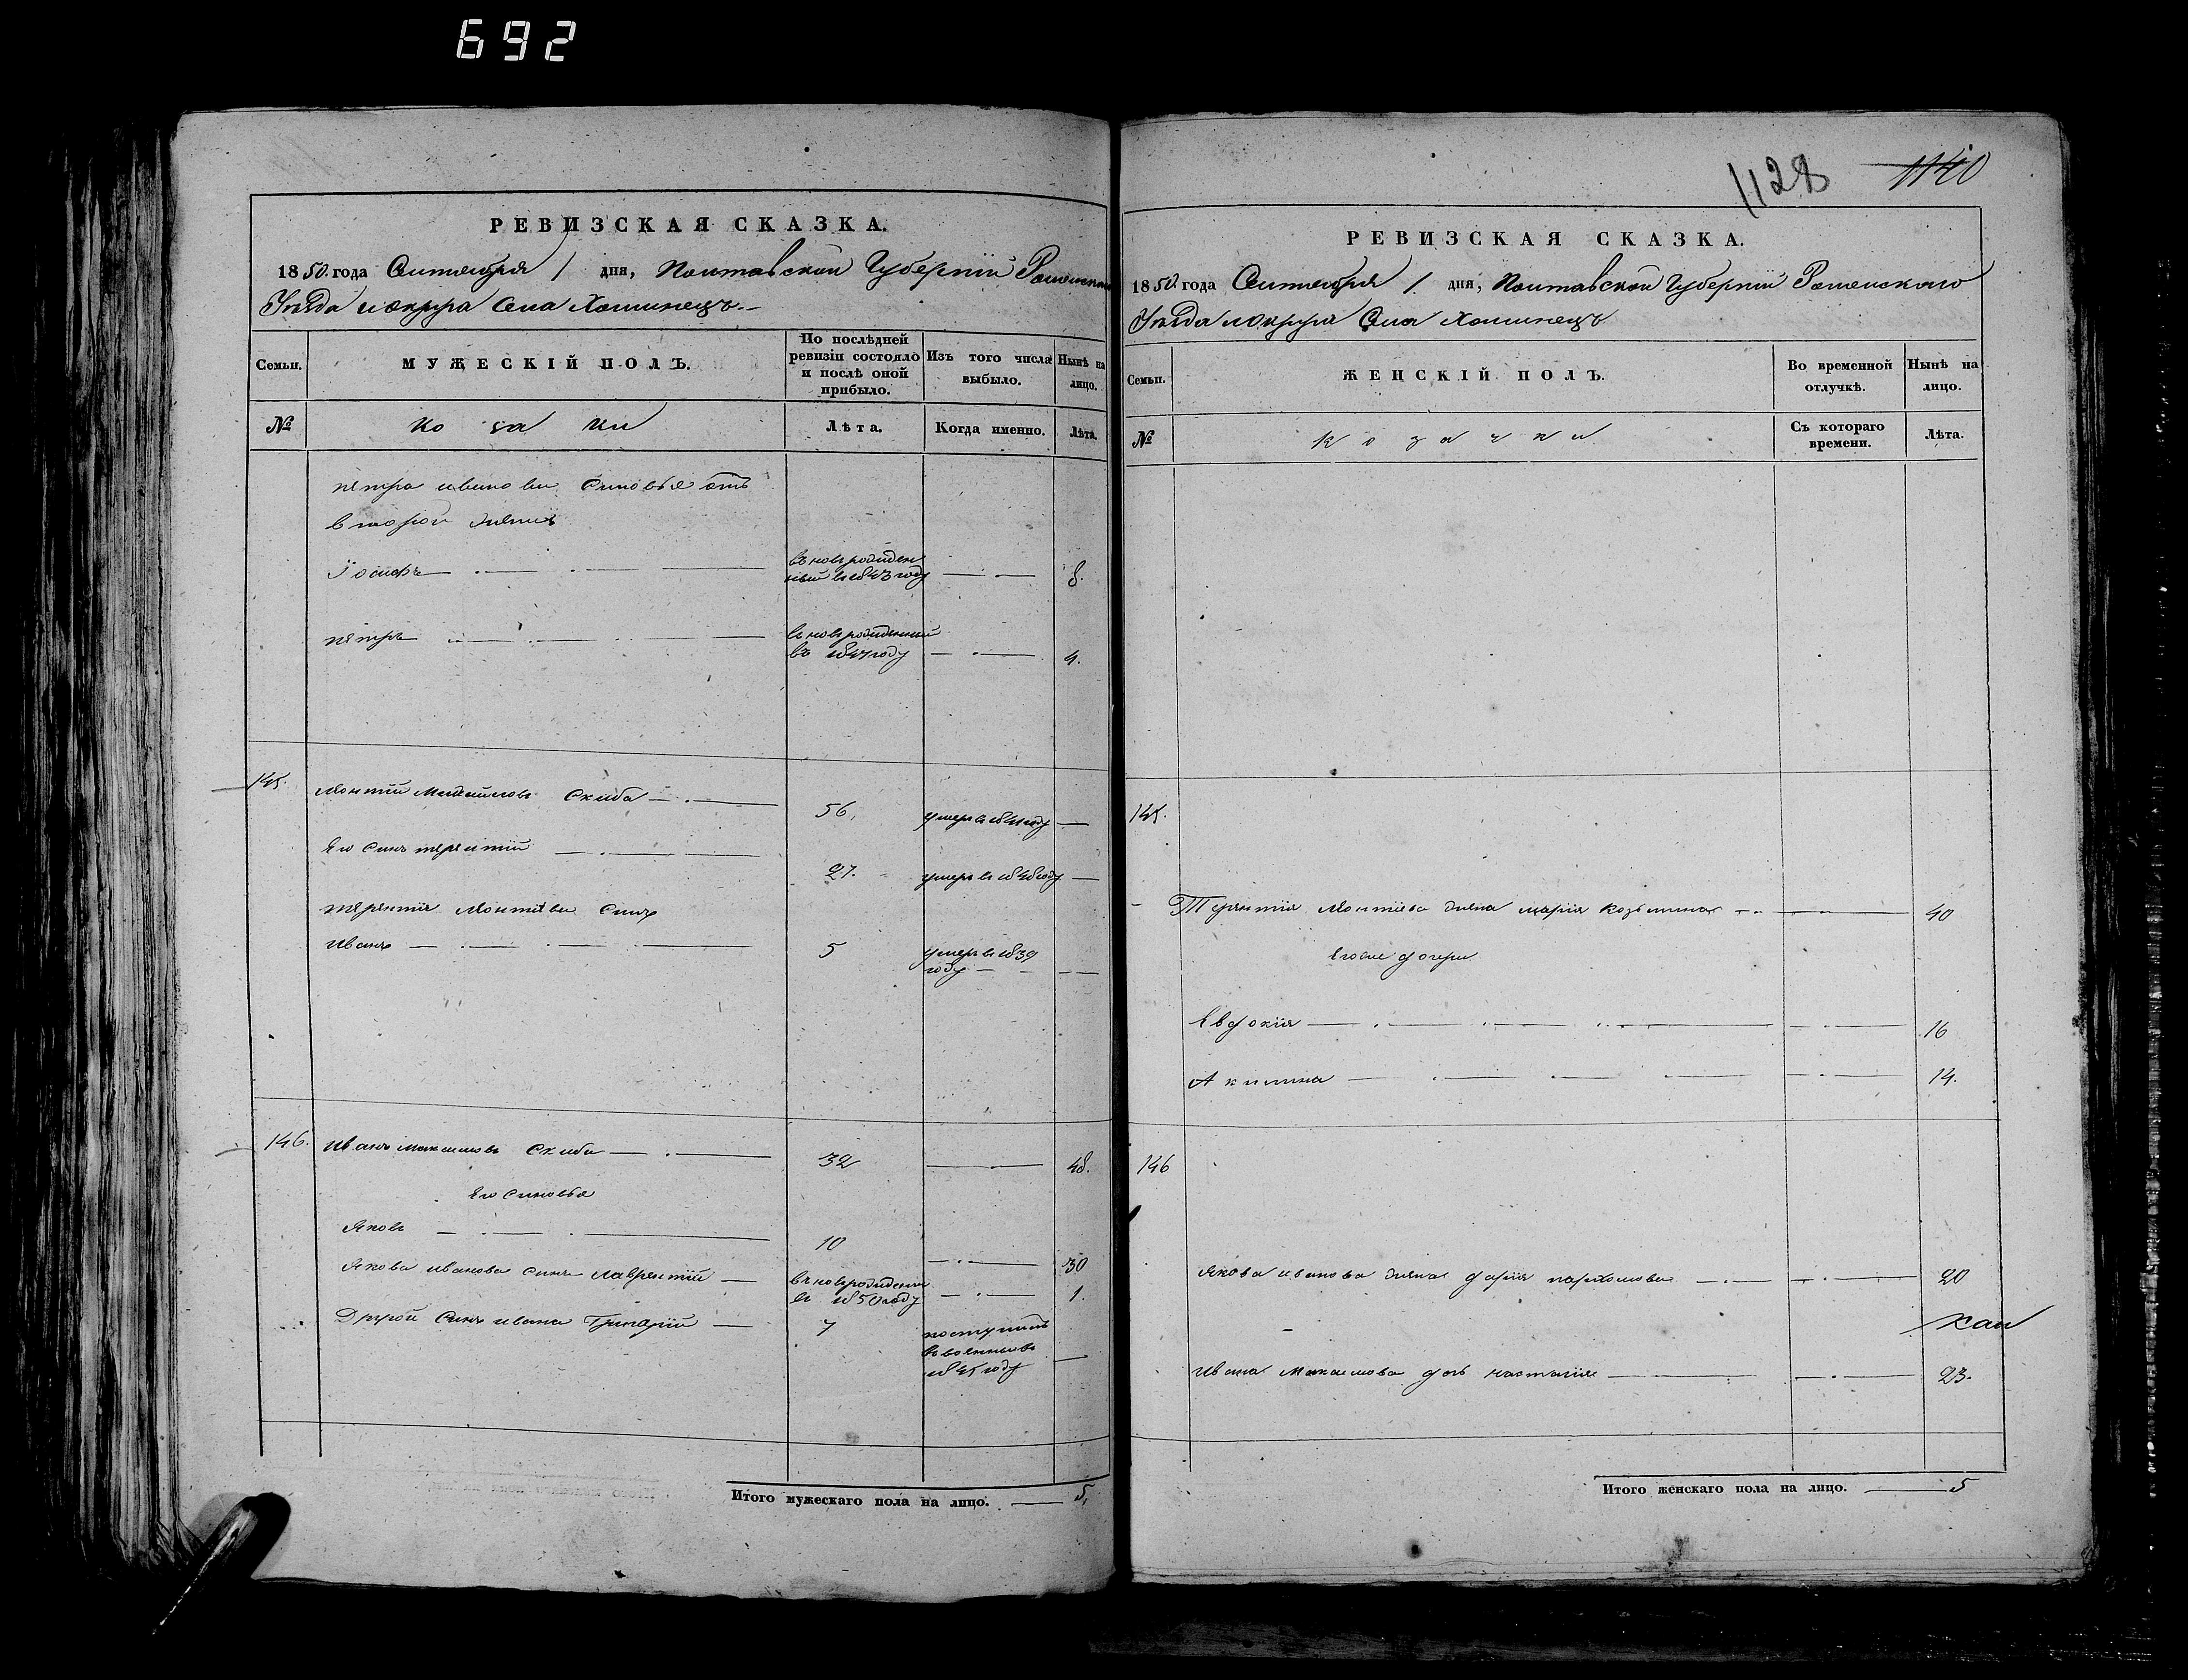 692
1128 1140
РЕВИЗСКАЯ СКАЗКА.
1850. года Сентября 1 дня, Полтавской Губерніи Роменского
Уезда и округа Села Хоминецъ.
Семьи.
МУЖЕСКІЙ ПОЛЪ.
По послѣдней ревизіи состояло и послѣ оной прибыло.
Изъ того числа выбыло.
Нынѣ на лицо.
№
Козаки
Лѣта.
Когда именно.
Лѣта.
петра иванова синовья отъ
второй жены
Іосифъ вновьрожден
ный в 1843 году 8.
петръ вновьрожденный
въ 1847 году 4.
145. Леонтій Михайловъ Скиба 56. умеръ в 1841 году
Его Синъ терентій 27. умеръ в 1848 году
терентія Леонтіева Синъ
иванъ 5 умеръ в 1839
году
146. иванъ Максимовъ Скиба 32 48.
Его синовья
Яковъ 10 30
Якова иванова синъ лаврентій вновьрожден
в 1850 году 1.
Другой Синъ ивана Григорій 7 поступилъ
в военные в
1845 году
Итого мужескаго пола на лицо. 5.
РЕВИЗСКАЯ СКАЗКА.
1850. года Сентября 1 дня, Полтавской Губерніи Роменского
Уезда и округа Села Хоминецъ
Семьи.
ЖЕНСКІЙ ПОЛЪ.
Во временной отлучкѣ.
Нынѣ на лицо.
№
Козачки
Съ котораго времени.
Лѣта.
145.
Терентія Леонтіева жена марія Козьмина 40
Евдокія 16
Акилина 14.
146
Якова иванова жена дарія пархомова 20
ивана Максимова дочь настасія 23.
Итого женскаго пола на лицо. 5